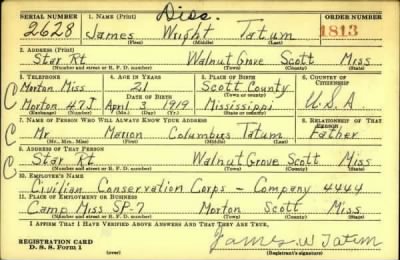 SERIAL NUMBER 1. NAME (Print) Disc. ORDER NUMBER
2628 James Wright Tatum 1813
(First) (Middle) (Last)
2. ADDRESS (Print)
Star Rt Walnut Grove Scott Miss
(Number and street or R. F. D. number) (Town) (County) (State)
3. TELEPHONE 4. AGE IN YEARS 5. PLACE OF BIRTH 6. COUNTRY OF CITIZENSHIP
C Morton Miss 21 Scott County
DATE OF BIRTH (Town or county)
Morton 475 April 3 1919 Mississippi U.S.A
(Exchange) (Number) (Mo.) (Day) (Yr.) (State or country)
7. NAME OF PERSON WHO WILL ALWAYS KNOW YOUR ADDRESS 8. RELATIONSHIP OF THAT PERSON
C Mr Marion Columbus Tatum Father
(Mr., Mrs., Miss) (First) (Middle) (Last)
9. ADDRESS OF THAT PERSON
C Star Rt Walnut Grove Scott Miss
(Number and street or R. F. D. number) (Town) (County) (State)
10. EMPLOYER'S NAME
Civilian Conservation Corps - Company 4444
11. PLACE OF EMPLOYMENT OR BUSINESS
Camp Miss SP-7 Morton Scott Miss
(Number and street or R. F. D. number) (Town) (County) (State)
I AFFIRM THAT I HAVE VERIFIED ABOVE ANSWERS AND THAT THEY ARE TRUE.
REGISTRATION CARD
D. S. S. Form 1 James W Tatum
(Registrant's signature)